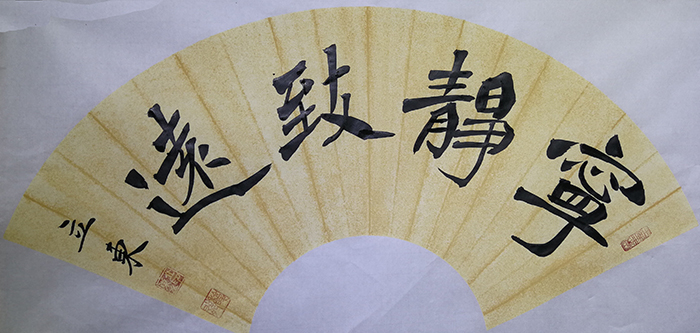 寧靜致遠
立東